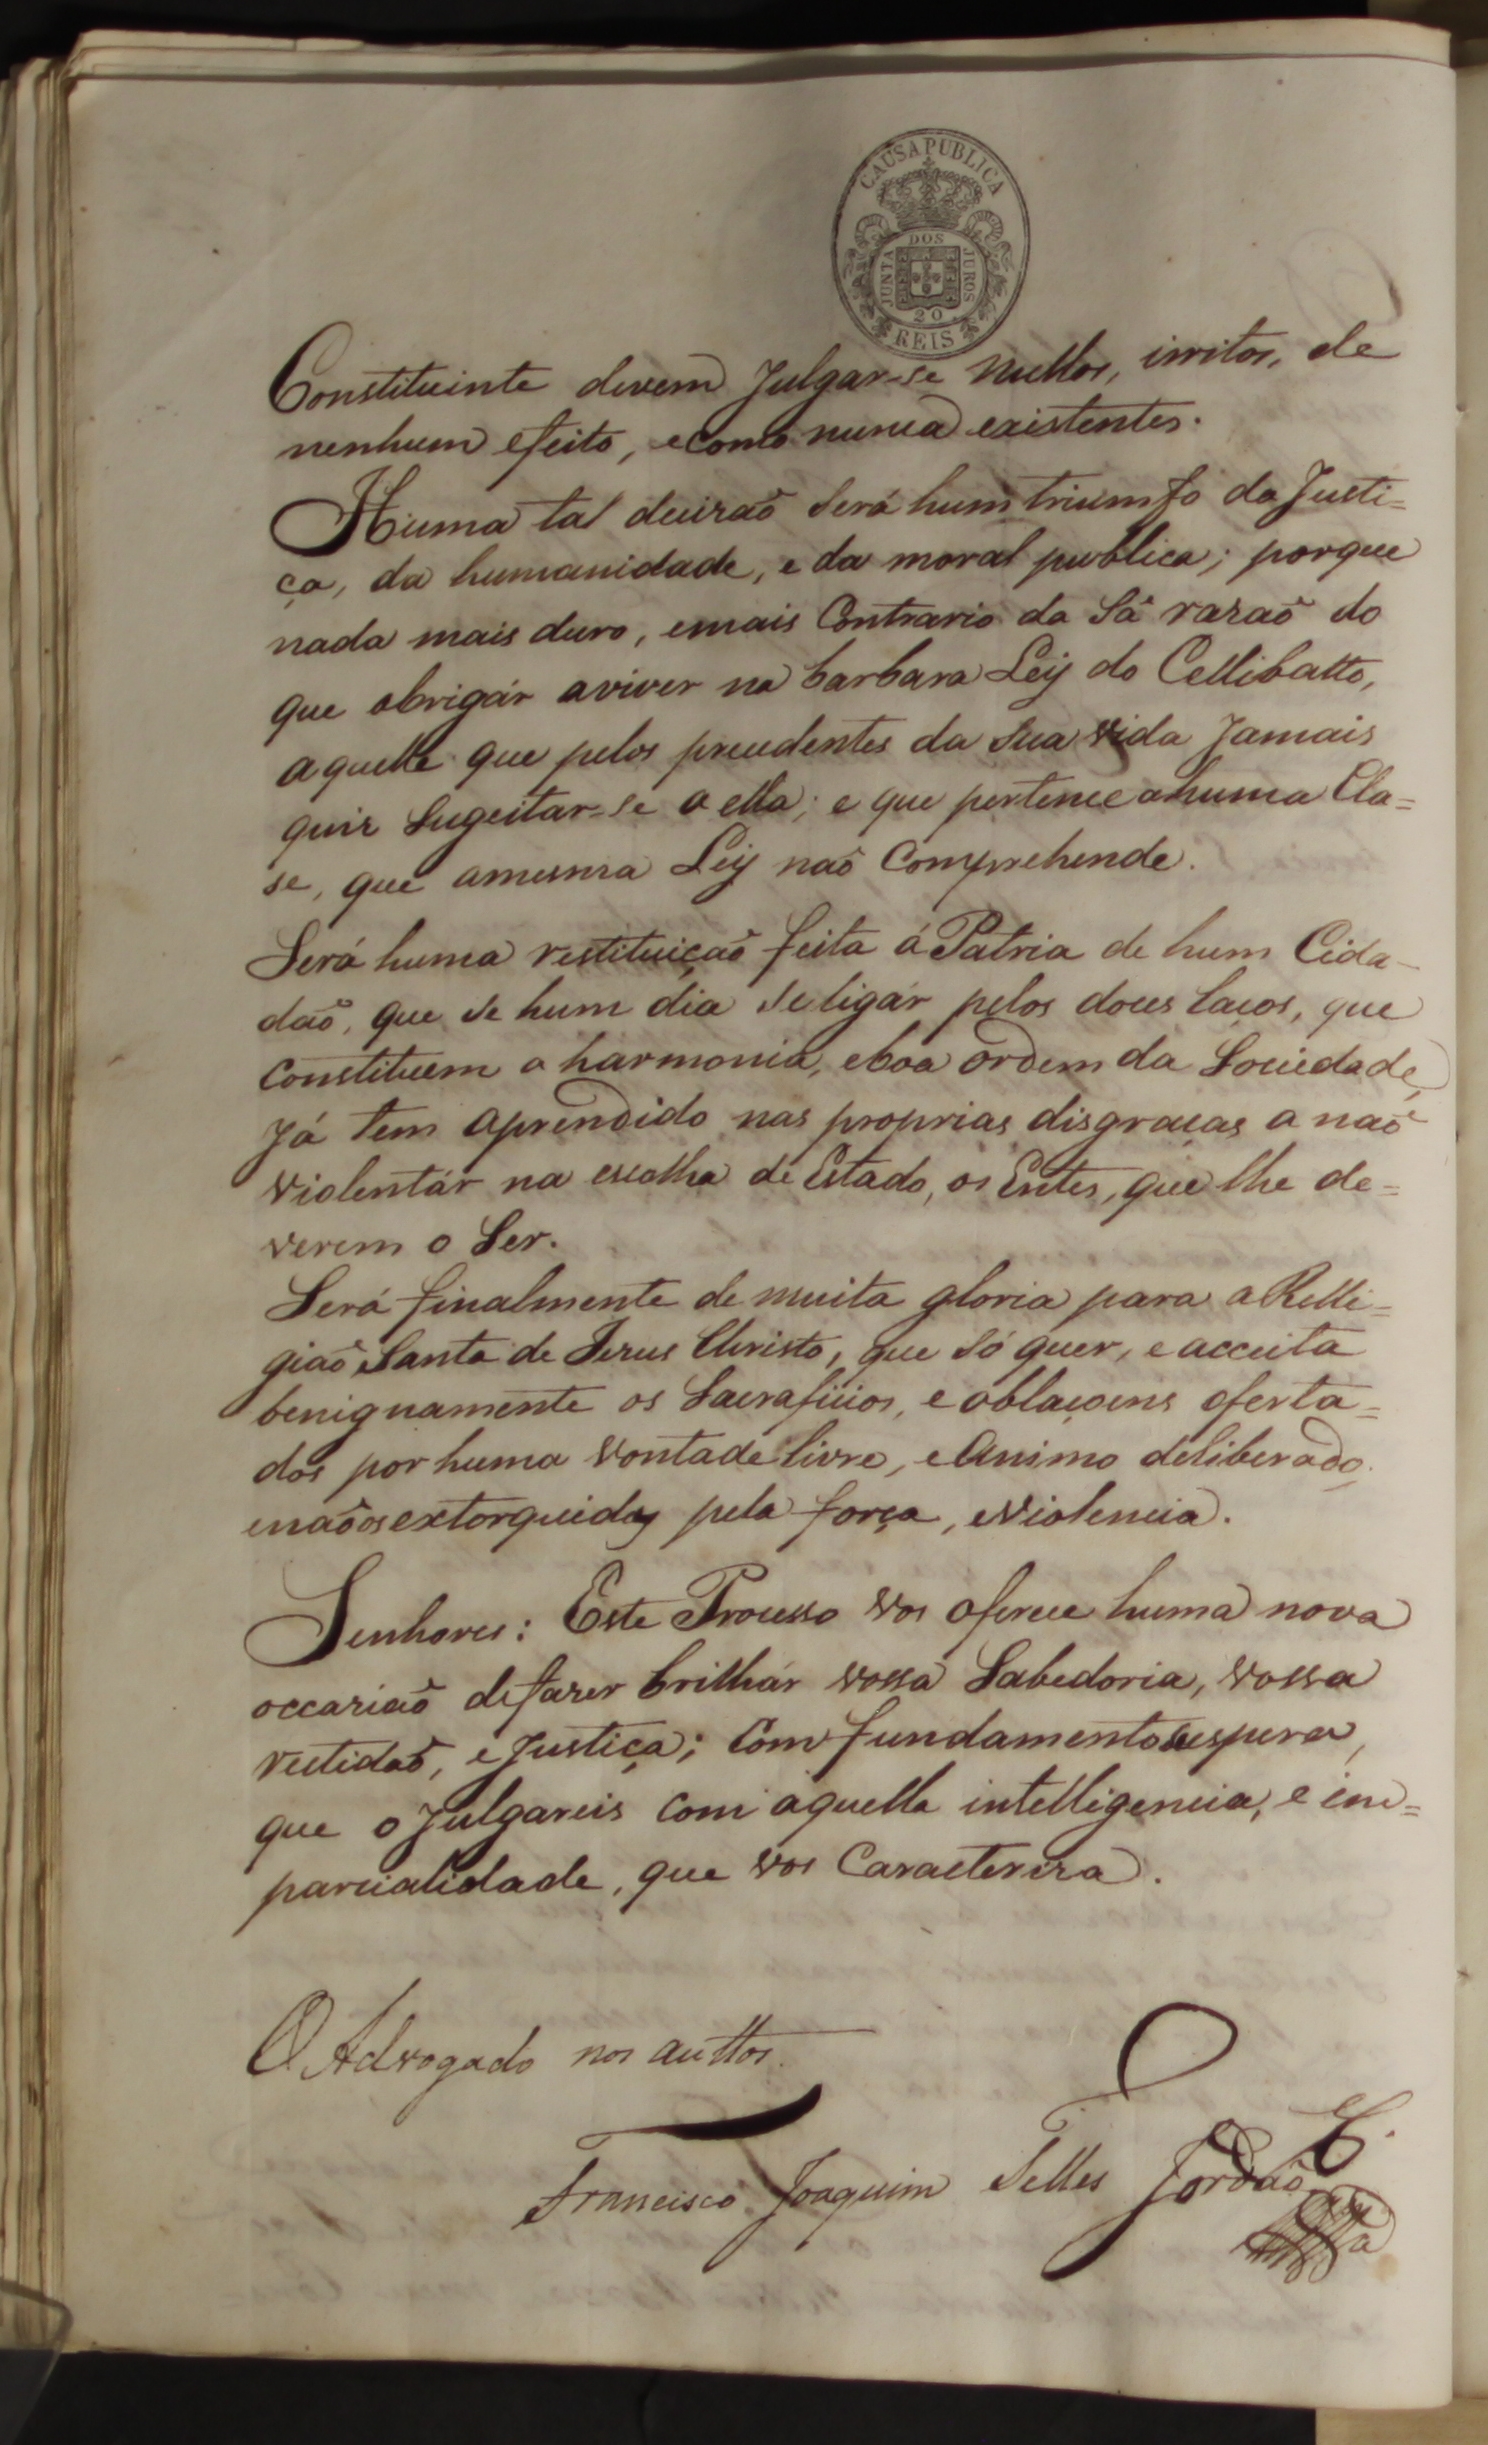 CAUSA PUBLICA
JUNTA DOS JUROS
20
REIS
Constituinte devem Julgar-se nullos, irritos, de
nenhum efeito, e como nunca existentes.
Huma tal decizaõ Será hum triumfo da Justi=
ça, da humanidade, e da moral publica; porque
nada mais duro, e mais Contrario da Sã razaõ do
que obrigár a viver na barbara Ley do Cellibatto,
aquelle que pelos precedentes da Sua Vida Jamais
quiz Sugeitar-se a ella; e que pertence a huma Cla=
se, que a mesma Ley naõ Comprehende.
Será huma restituiçaõ feita á Patria de hum Cida-
daõ, que se hum dia se ligár pelos doces laços, que
Constituem a harmonia, e boa ordem da Sociedade,
Já tem aprendido nas proprias disgraças a naõ
Violentár na escolha de Estado, os Entes, que lhe de=
verem o Ser.
Será finalmente de muita gloria para a Relli=
giaõ Santa de Jezus Christo, que Só quer, e acceita
benignamente os Sacraficios, e oblaçoens oferta=
dos por huma Vontade livre, e Animo deliberado,
e naõ os extorquidos pela força, e Violencia.
Senhores: Este Processo Vos oferece huma nova
occaziaõ de fazer brilhár Vossa Sabedoria, Vossa
rectidaõ, e Justiça; Com fundamento se espera,
que o Julgareis Com aquella intelligencia, e im=
parcialidade, que Vos Caracteriza.
O Advogado nos auttos
Francisco Joaquim Telles Jordaõ